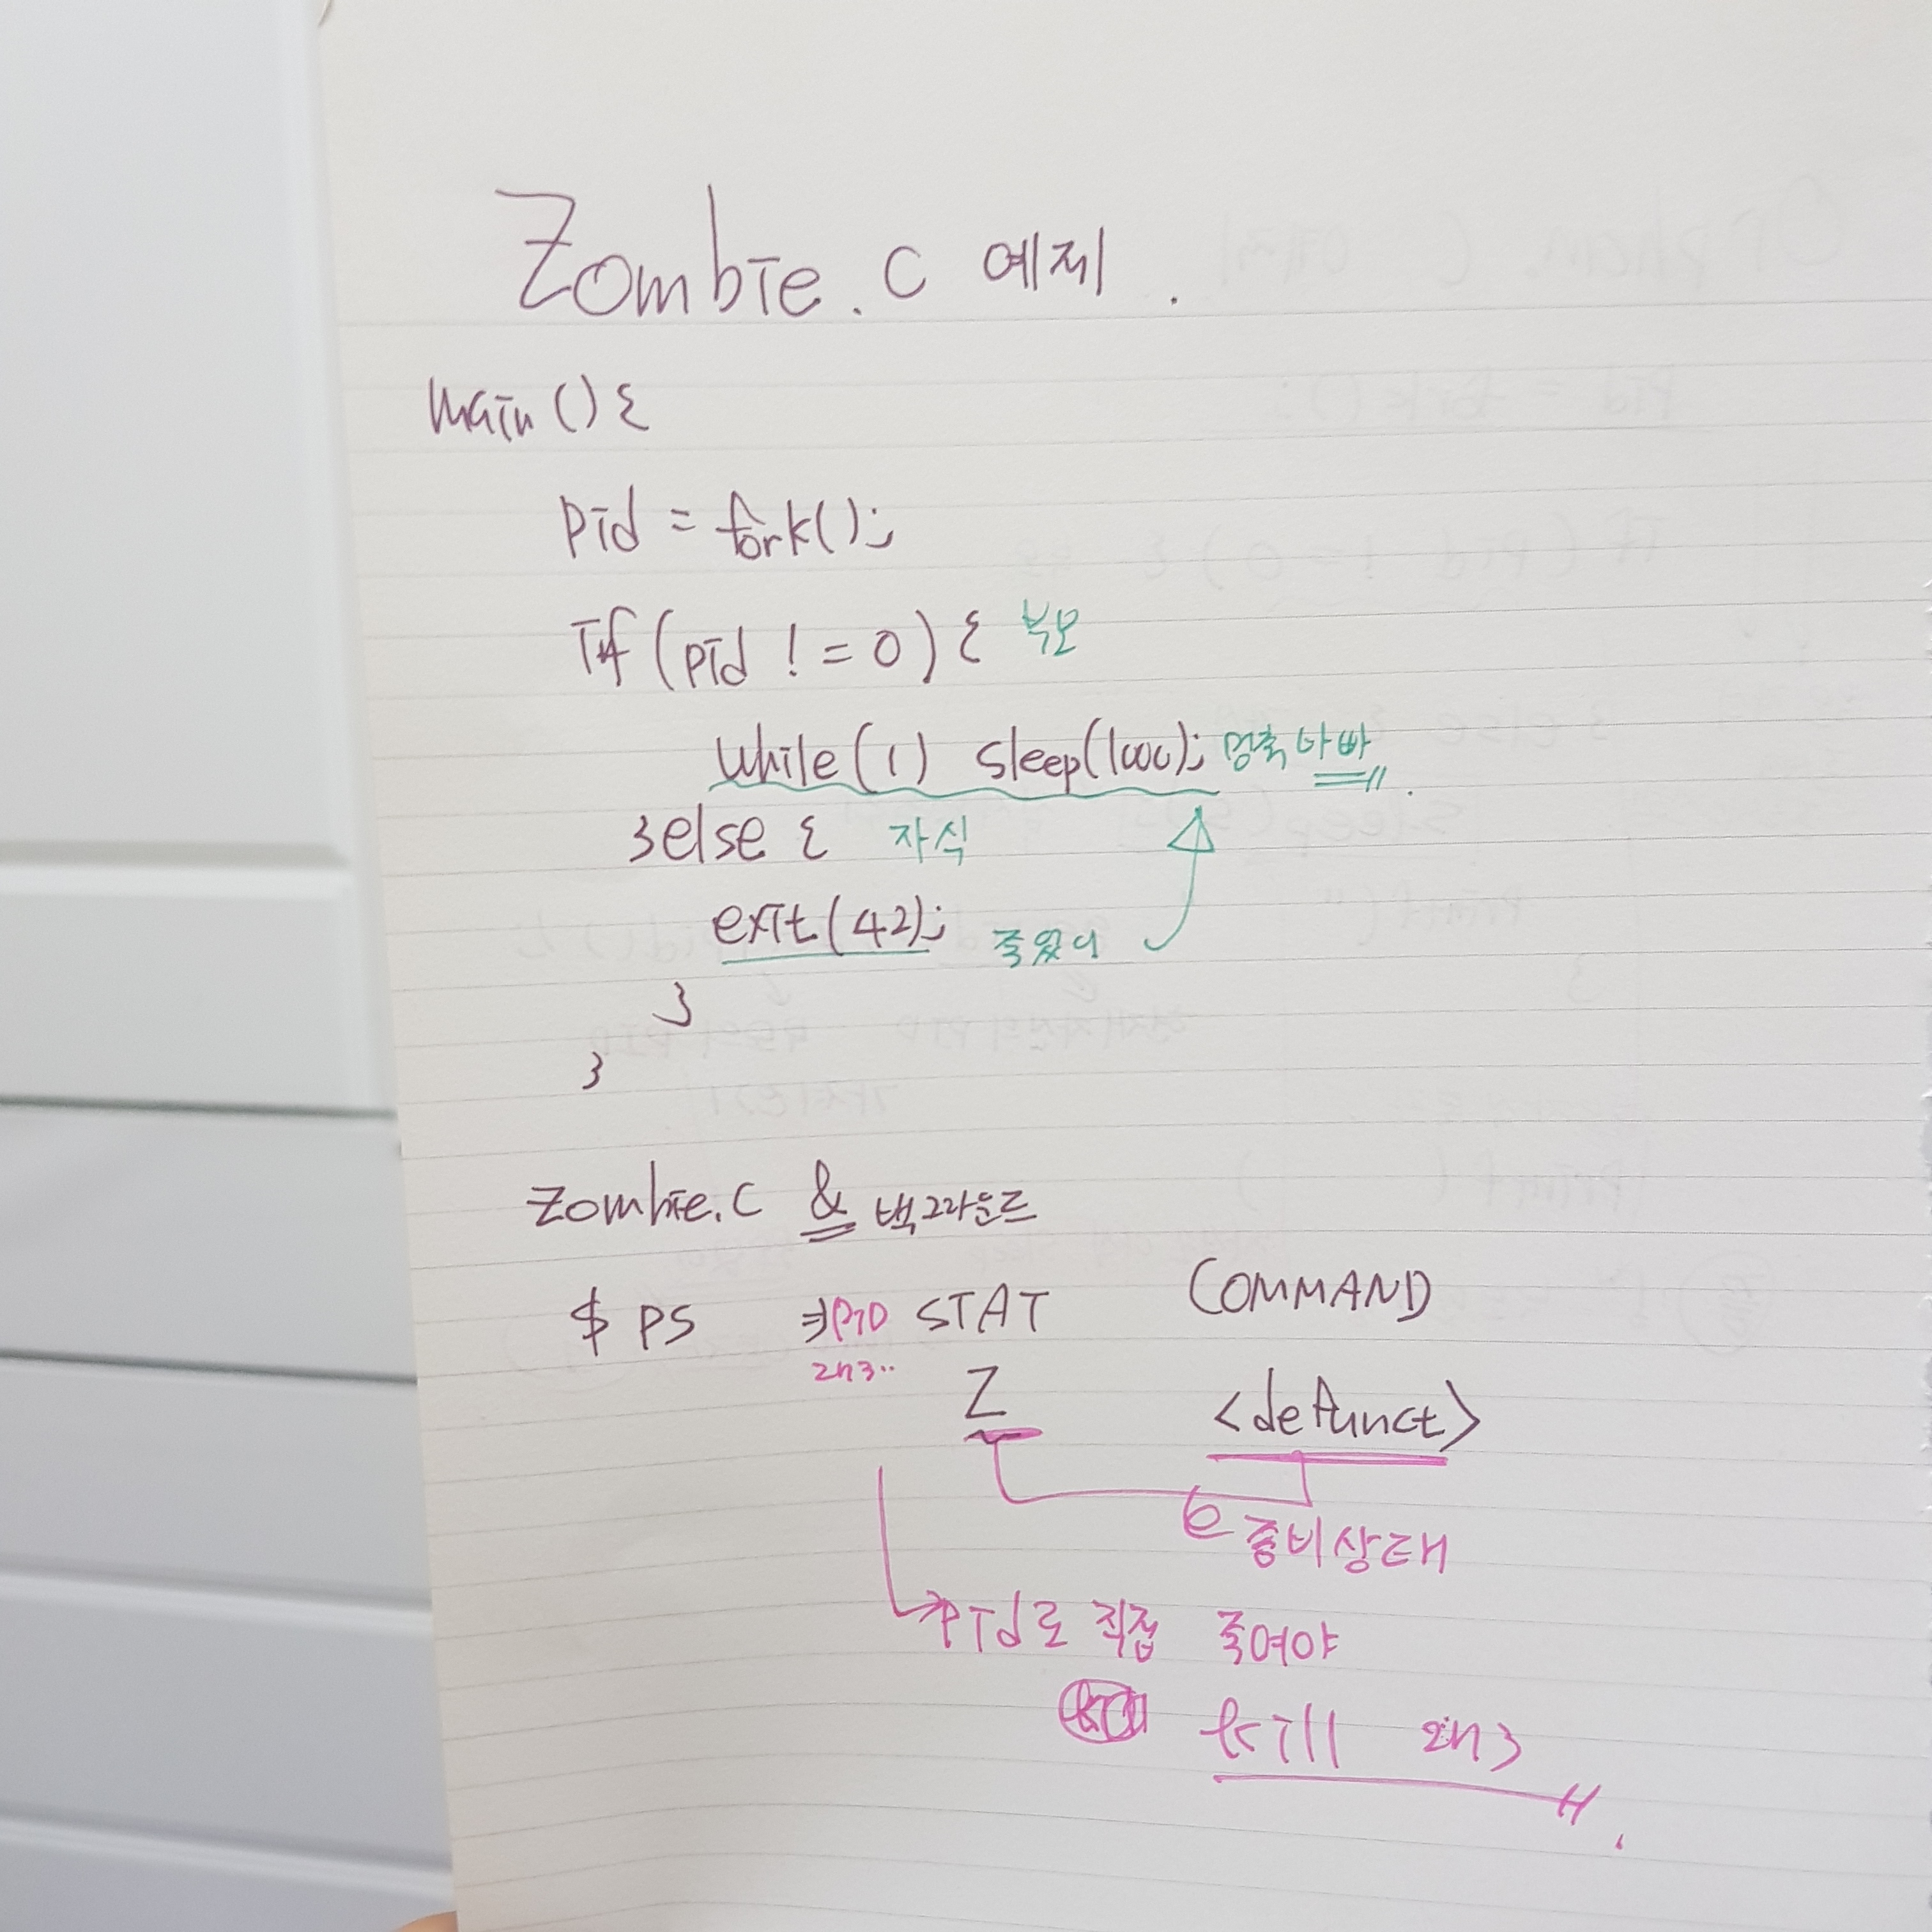 Zombie.c 예제.
main(){
pid = fork();
if(pid != 0){ 부모
while(1) sleep(100); 멍축 아빠
}else{ 자식
exit(42); 죽었어
}
}
zombie.c & 백그라운드
$ PS ⇒ PID STAT COMMAND
273.. Z <defunct>
좀비상태
→ Pid로 직접 죽여야
kill 273